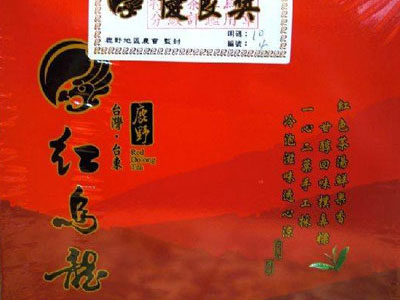 優良獎
鹿野地區農會 監封
周碼：10
編號：4
紅色茶湯鮮果香
甘醇回味樸真糖
一心二葉手工採
冷泡滋味透心涼
鹿野
Red
Oolong
Tea
台灣·台東
紅烏龍